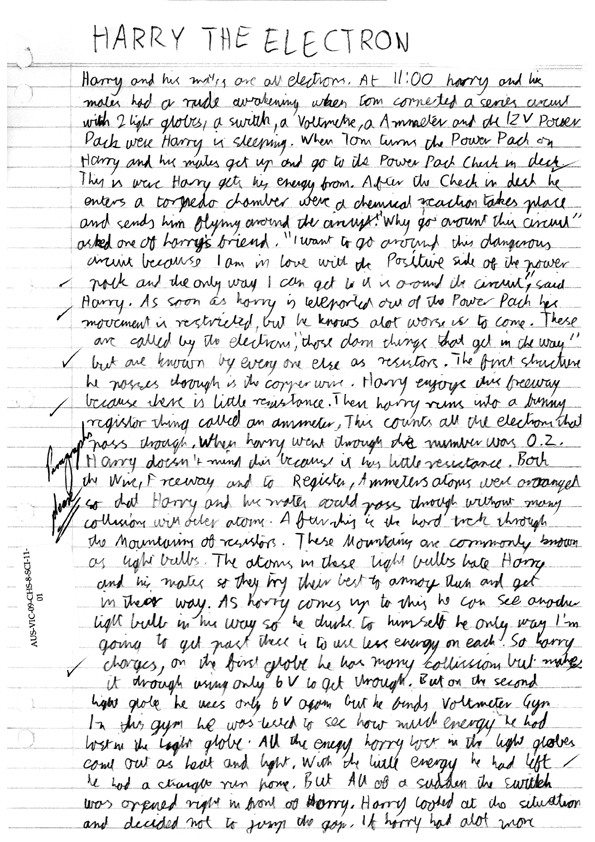 HARRY THE ELECTRON
Harry and his mates are all electrons. At 11:00 harry and his
mates had a rude awakening when tom connected a series circuit
with 2 light globes, a switch, a Voltmetre, a Ammeter and de 12V Power
Pack were Harry is sleeping. When Tom turns the Power Pack on
Harry and his mates get up and go to the Power Pach Check in desk
This is were Harry gets his energy from. After the Check in desk he
enters a torpedo chamber were a chemical reaction takes place
and sends him flying around the circuit. "Why go arount this circuit"
asked one of harrys friend. "I want to go around this dangerous
circuit because I am in love with the Positive side of the power
pack and the only way I can get to it is around the circuit", said
Harry. As soon as harry is teleported out of the Power Pach his
movement is restricted, but he knows alot worse is to come. These
are called by the electrons, "those darn things that get in the way"
but are known by every one else as resistors. The first structure
he passes through is the copper wire. Harry enjoys this freeway
because there is little resistance. Then harry runs into a bunny
register thing called an ammeter, This counts all the electrons that
pass through. When harry went through the number was 0.2.
Harry doesn't mind this because it has little resistance. Both
the Wire, Freeway and to Register, Ammeters atoms were arranged
so that Harry and his mates could pass through without many
collisions with other atoms. After this is the hard trek through
the Mountains of resistors. These Mountains are commonly known
as light bulbs. The atoms in these light bulbs hate Harry
and his mates so they try their best to annoy them and get
in their way. As harry comes up to this he can see another
light bulb in his way so he thinks to himself he only way I'm
going to get past these is to use less energy on each. So harry
charges, on the first globe he has many collissions but makes
it through using only 6V to get through. But on the second
light globe he uses only 6V again but he finds Voltmeter Gym
In this gym he was used to see how much energy he had
lost in the light globe. All the enegy harry lost in the light globes
came out as heat and light. With the little energy he had left
he had a straight run home. But All of a sudden the switch
was opened right in front of Harry. Harry looked at the situation
and decided not to jump the gap. If harry had alot more
Paragraphs
please
AUS-VIC-09-CHS-8-SCI-11-
01